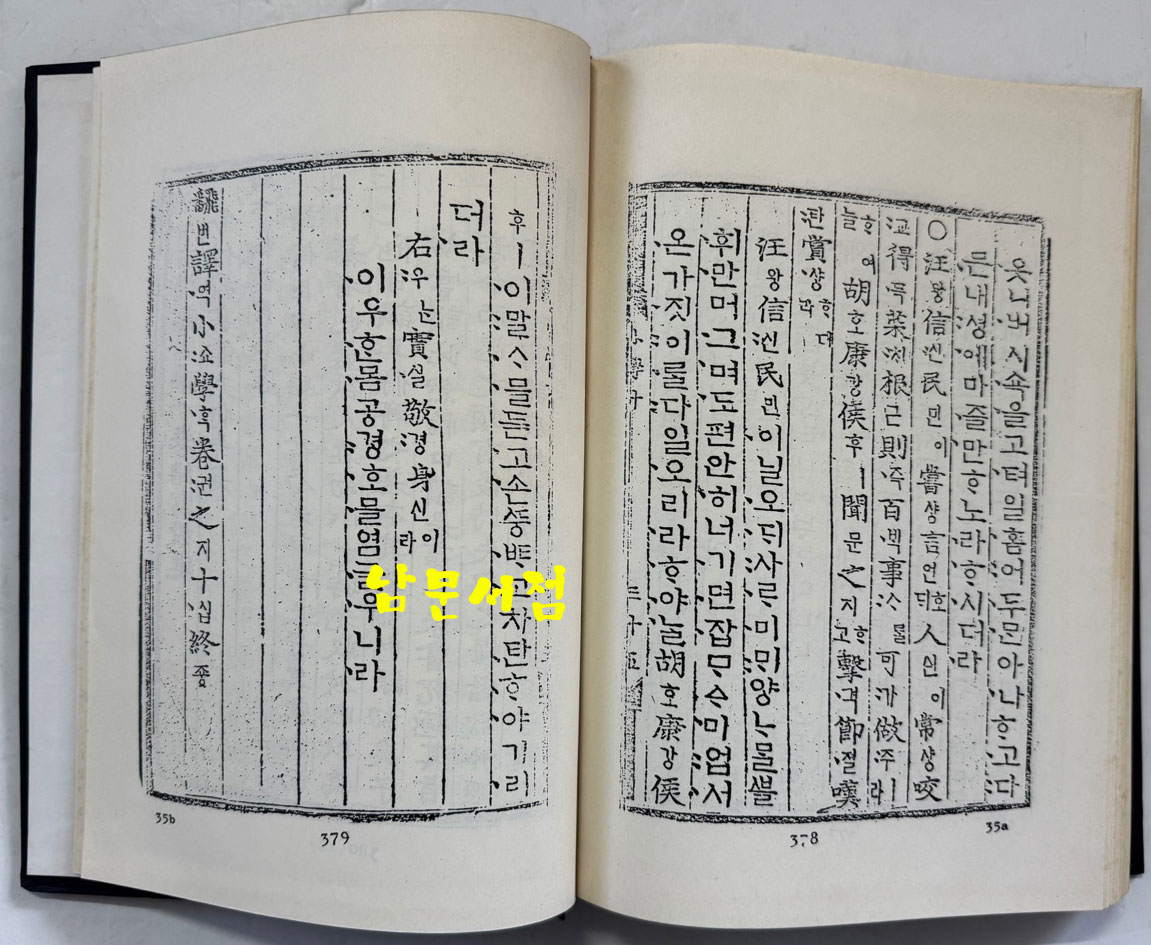 옷니버시쇽을고텨일홈어두믄아나ᄒᆞ고다
ᄆᆞᆫ내셩에마즐만ᄒᆞ노라ᄒᆞ시더라
○汪왕信신民민이嘗샹言언호ᄃᆡ人ᅀᅵᆫ이常샹咬
교得득菜ᄎᆡ根근則즉百ᄇᆡᆨ事ᄉᆞᄅᆞᆯ可가做주ㅣ라
ᄒᆞ여늘胡호康강侯후ㅣ聞문之지ᄒᆞ고擊격節졀嘆
탄賞샹ᄒᆞ더라
汪왕信신民민이닐오ᄃᆡ사ᄅᆞ미ᄆᆡ양ᄂᆞᄆᆞᆯᄲᅮᆯ
휘만머그며도편안히너기면잡ᄆᆞᅀᆞ미업서
온가짓이ᄅᆞᆯ다일오리라ᄒᆞ야ᄂᆞᆯ胡호康강侯
三十五
378
35a
후ㅣ이말ᄉᆞᄆᆞᆯ듣고손고차탄ᄒᆞ야기리
더라
右우ᄂᆞᆫ實실敬경身신이라
이우ᄒᆞᆫ몸공경호ᄆᆞᆯ염글우니라
飜번譯역小쇼學ᄒᆞᆨ卷권之지十십終죵
35b
379
남문서점